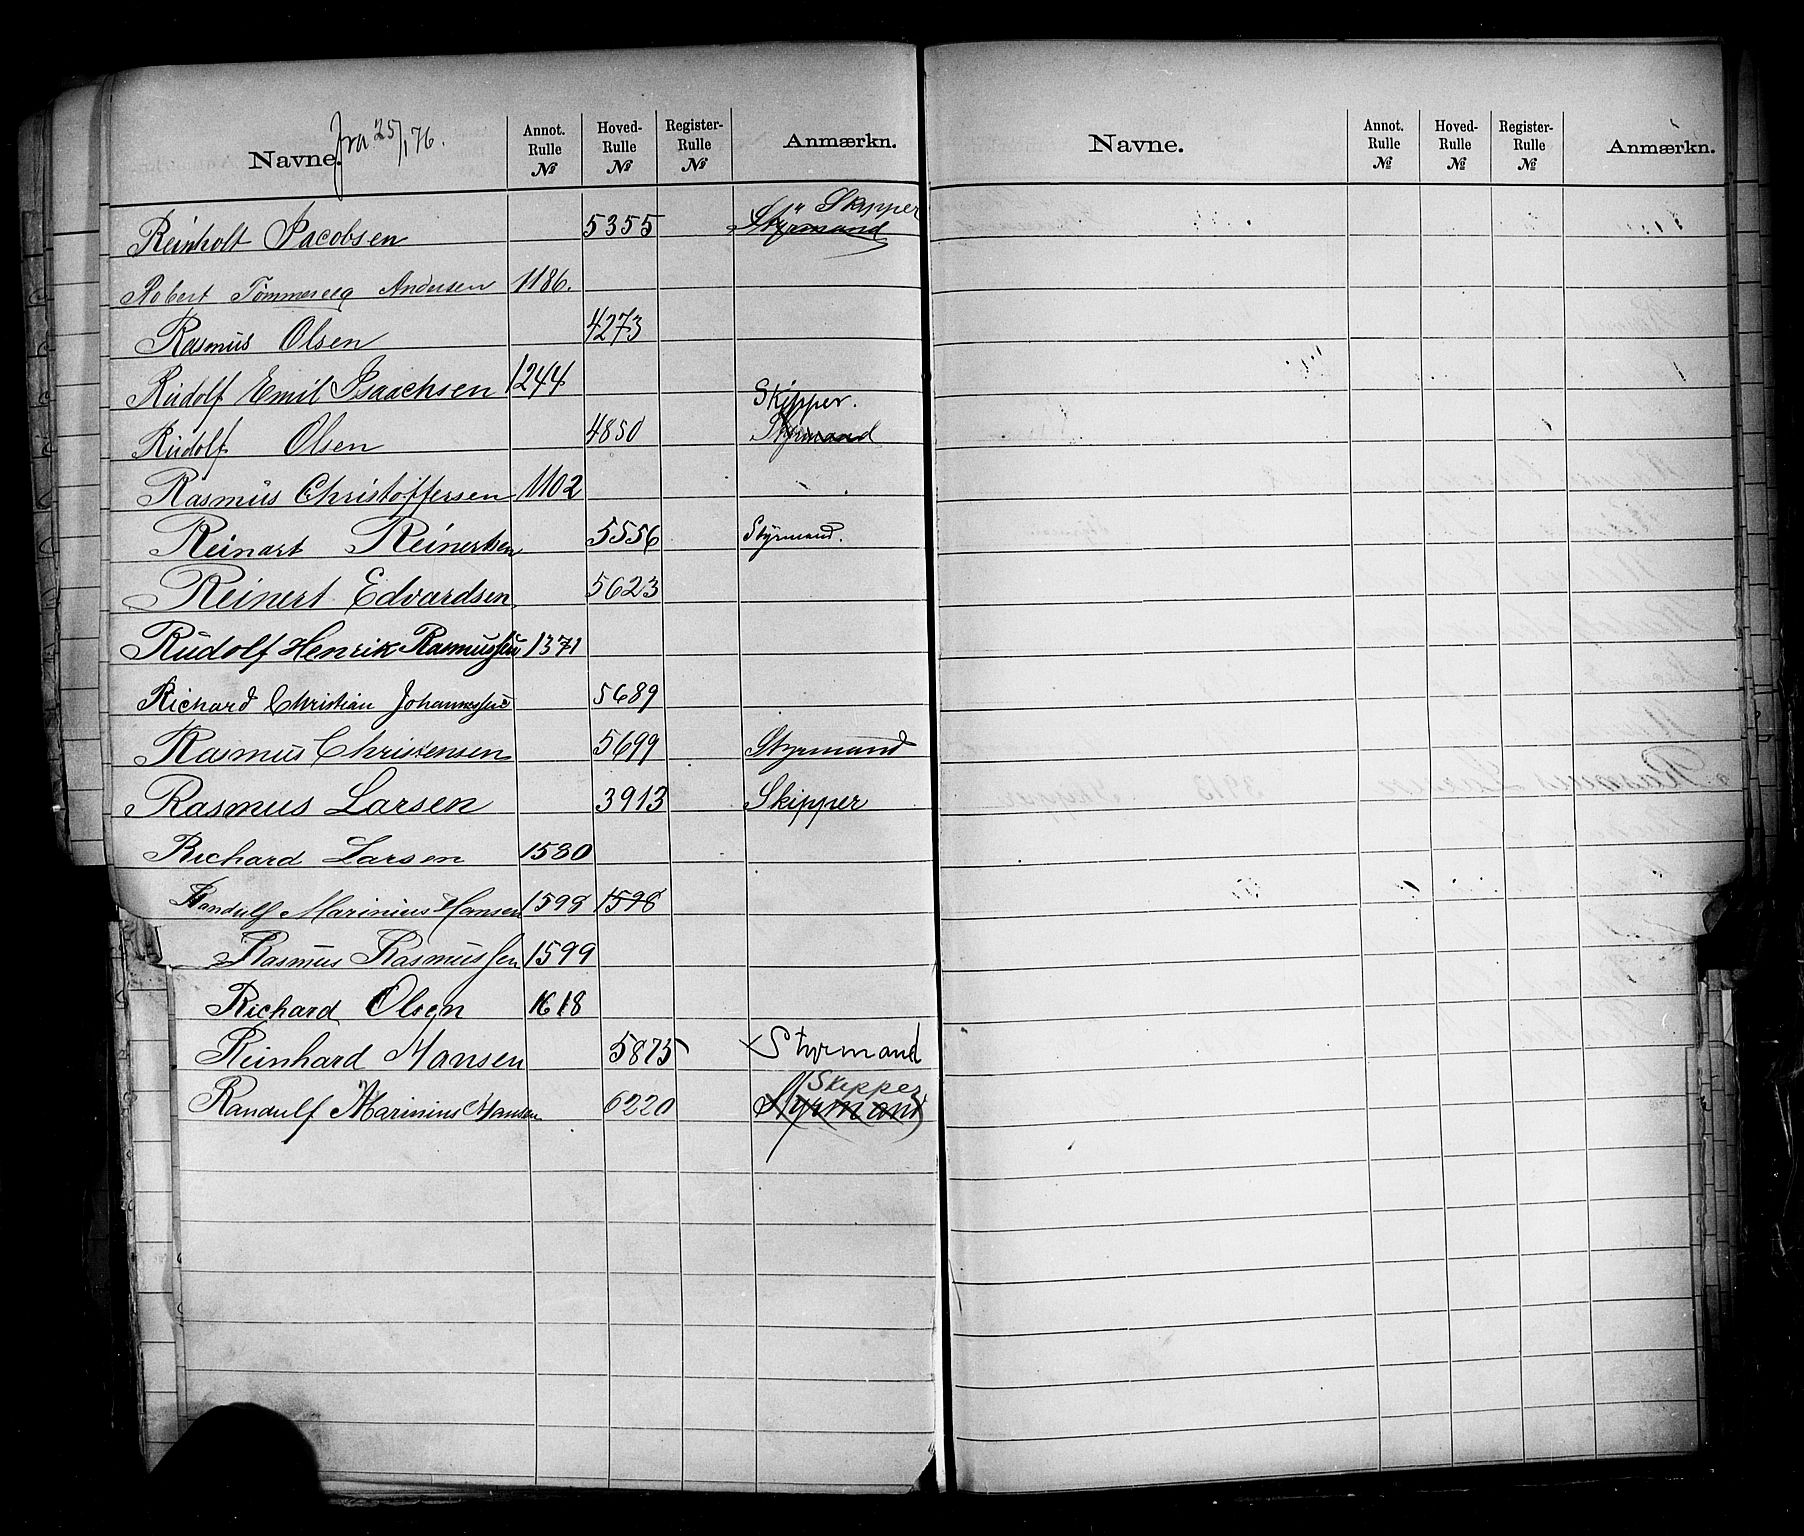 Navne. fra 25/1 76. Annot. Rulle № Hoved- Rulle № Register- Rulle № Anmærkn.
Reinholt Jacobsen 5355 Styrmand Skipper
Robert Andersen 1186.
Rasmus Olsen 4273
Rudolf Emil Isaachsen 1244
Rudolf Olsen 4850 Skipper. Styrmand
Rasmus Christoffersen 1102
Reinart Reinertsen 5556 Styrmand.
Reinert Edvardsen 5623
Rudolf Henrik Rasmussen 1371
Richard Christian Johannessen 5689
Rasmus Christensen 5699 Styrmand
Rasmus Larsen 3913 Skipper
Richard Larsen 1580
Randulf Marinius Hansen 1598 1598
Rasmus Rasmussen 1599
Richard Olsen 1618
Reinhard Hansen 5875 Styrmand
Randulf Marinius Hansen 6220 Skipper Styrmand
Navne. Annot. Rulle № Hoved- Rulle № Register- Rulle № Anmærkn.